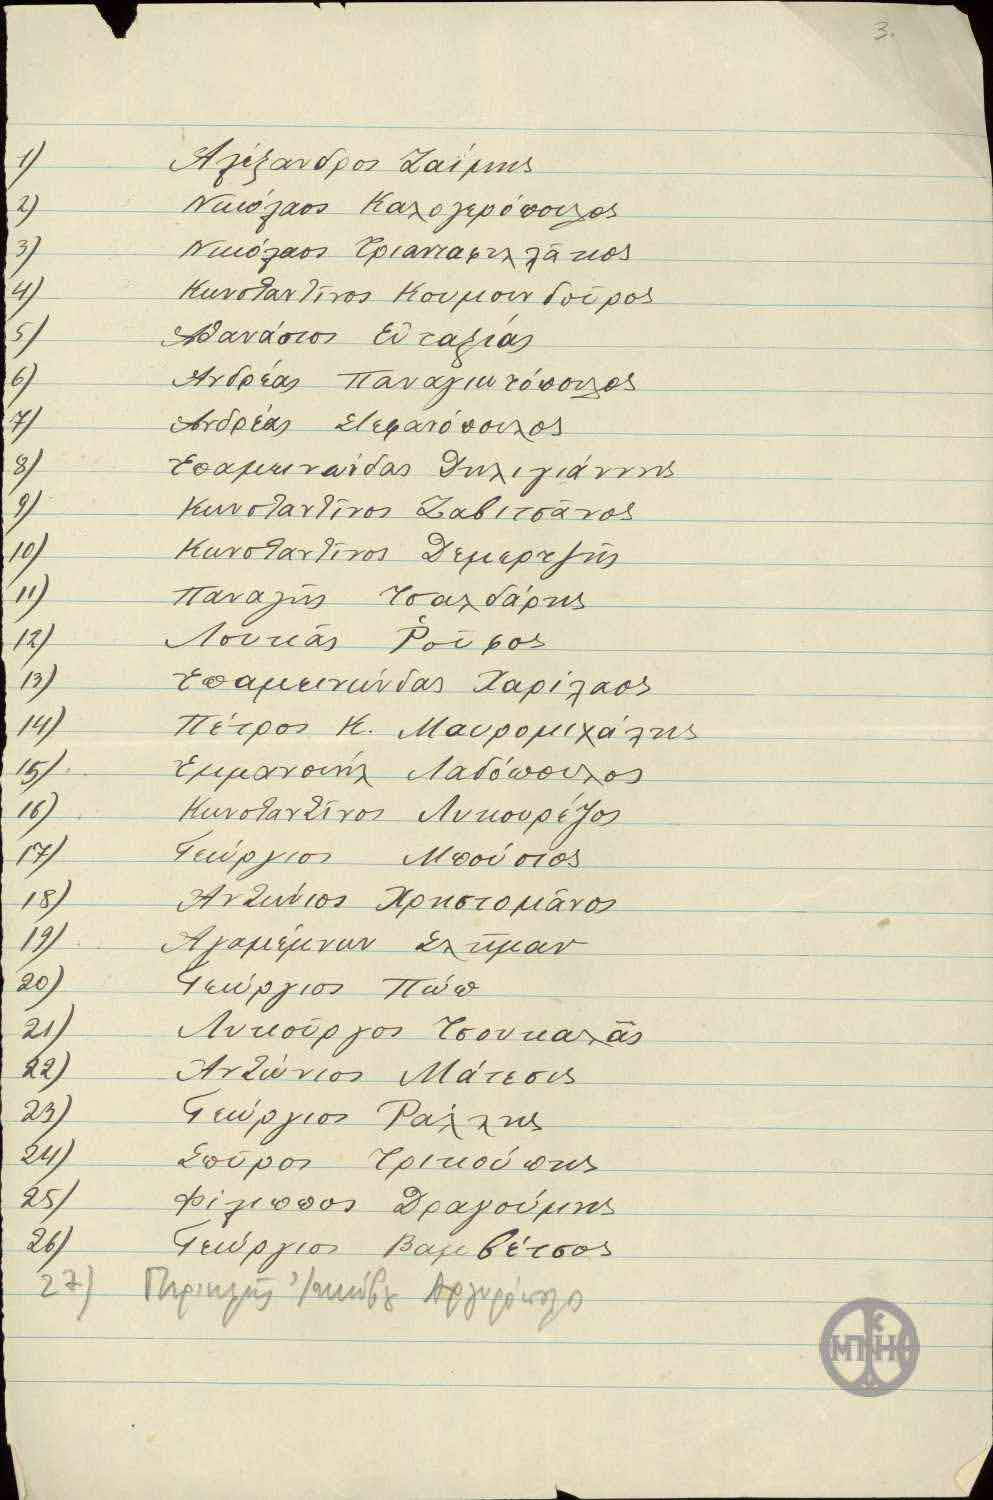 3.
1) Αλέξανδρος Ζαΐμης
2) Νικόλαος Καλογερόπουλος
3) Νικόλαος Τριανταφυλλάκος
4) Κωνσταντῖνος Κουμουνδοῦρος
5) Αθανάσιος Εὐταξίας
6) Ανδρέας Παναγιωτόπουλος
7) Ανδρέας Στεφανόπουλος
8) Επαμεινώνδας Δηλιγιάννης
9) Κωνσταντῖνος Ζαβιτσᾶνος
10) Κωνσταντῖνος Δεμερτζῆς
11) Παναγῆς Τσαλδάρης
12) Λουκᾶς Ῥοῦφος
13) Επαμεινώνδας Χαρίλαος
14) Πέτρος Κ. Μαυρομιχάλης
15) Εμμανουήλ Λαδόπουλος
16) Κωνσταντῖνος Λυκουρέζος
17) Γεώργιος Μπούσιος
18) Αντώνιος Χρηστομᾶνος
19) Αγαμέμνων Σλῆμαν
20) Γεώργιος Πώπ
21) Λυκοῦργος Τσουκαλᾶς
22) Αντώνιος Μάτεσις
23) Γεώργιος Ράλλης
24) Σπῦρος Τρικούπης
25) Φίλιππος Δραγούμης
26) Γεώργιος Βαμβέτσος
27) Περικλῆς Ἰακώβου Αργυρόπουλο
ΜΠΗ